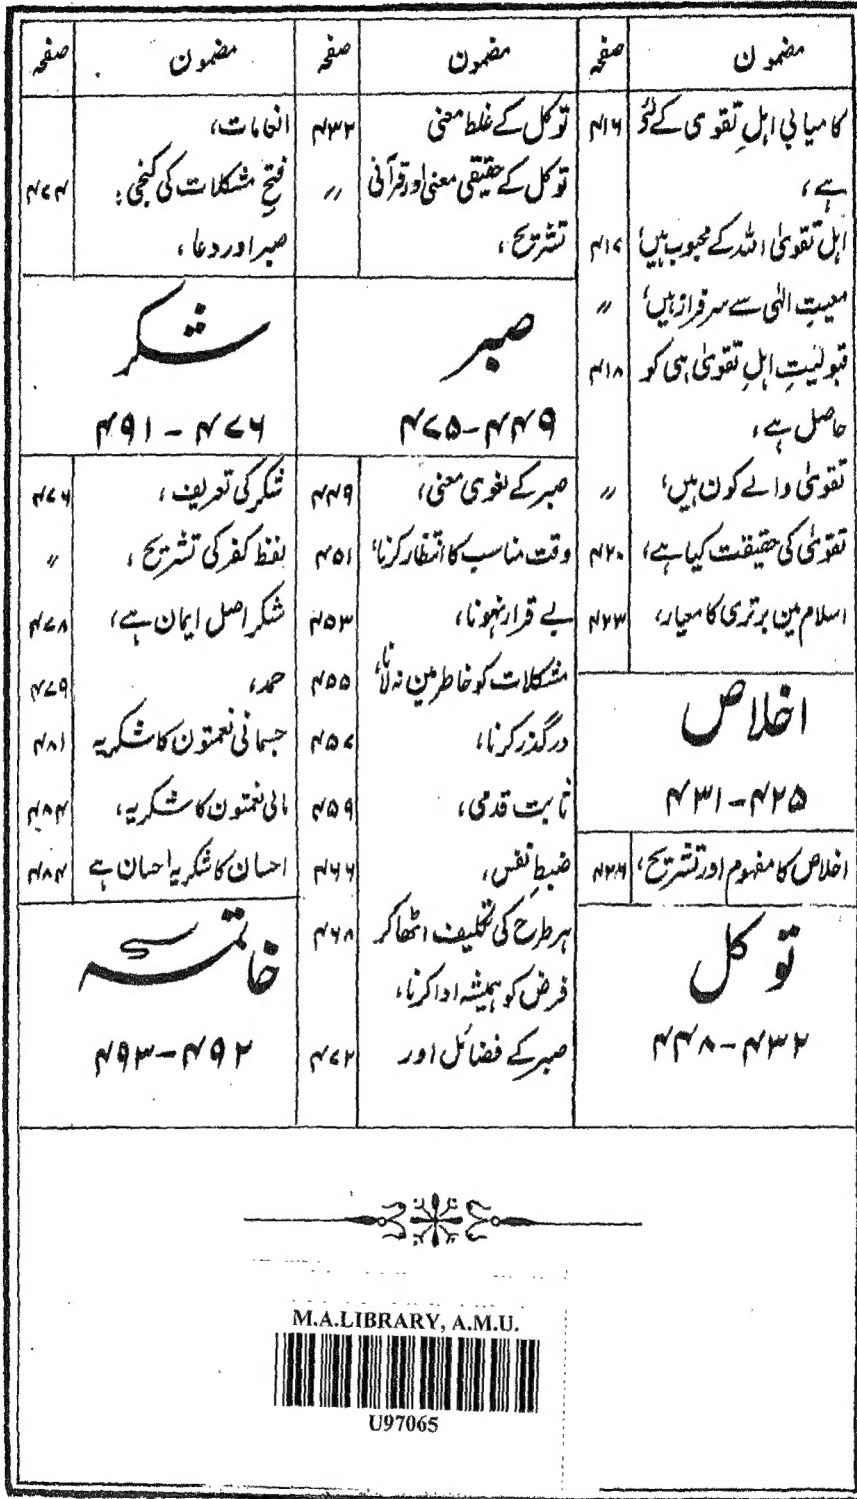 مضمون صفحہ
کامیابی اہلِ تقویٰ کے لئے ۴۱۶
ہے،
اہل تقویٰ اللہ کے محبوب ہیں، ۴۱۷
معیتِ الٰہی سے سرفراز ہیں، 〃
قبولیتِ اہلِ تقویٰ ہی کو ۴۱۸
حاصل ہے،
تقویٰ والے کون ہیں، 〃
تقویٰ کی حقیقت کیا ہے، ۴۲۰
اسلام مین برتری کا معیار، ۴۲۳
اخلاص
۴۲۵-۴۳۱
اخلاص کا مفہوم اور تشریح، ۴۲۵
توکل
۴۳۲-۴۴۸
مضمون صفحہ
توکل کے غلط معنی ۴۳۲
توکل کے حقیقی معنی اور قرآنی 〃
تشریح،
صبر
۴۴۹-۴۷۵
صبر کے لغوی معنی، ۴۴۹
وقت مناسب کا انتظار کرنا، ۴۵۱
بے قرار نہونا، ۴۵۳
مشکلات کو خاطر مین نہ لانا، ۴۵۵
درگذر کرنا، ۴۵۷
ثابت قدمی، ۴۵۹
ضبطِ نفس، ۴۶۶
ہر طرح کی تکلیف اٹھا کر ۴۶۸
فرض کو ہمیشہ ادا کرنا،
صبر کے فضائل اور ۴۷۲
مضمون صفحہ
انعامات،
فتحِ مشکلات کی کنجی: ۴۷۴
صبر اور دعا،
شکر
۴۷۶-۴۹۱
شکر کی تعریف، ۴۷۶
لفظ کفر کی تشریح، 〃
شکر اصل ایمان ہے، ۴۷۸
حمد، ۴۷۹
جسمانی نعمتون کا شکریہ ۴۸۱
مالی نعمتون کا شکریہ،
احسان کا شکریہ احسان ہے
خاتمہ
۴۹۲-۴۹۳
M.A.LIBRARY, A.M.U.
U97065